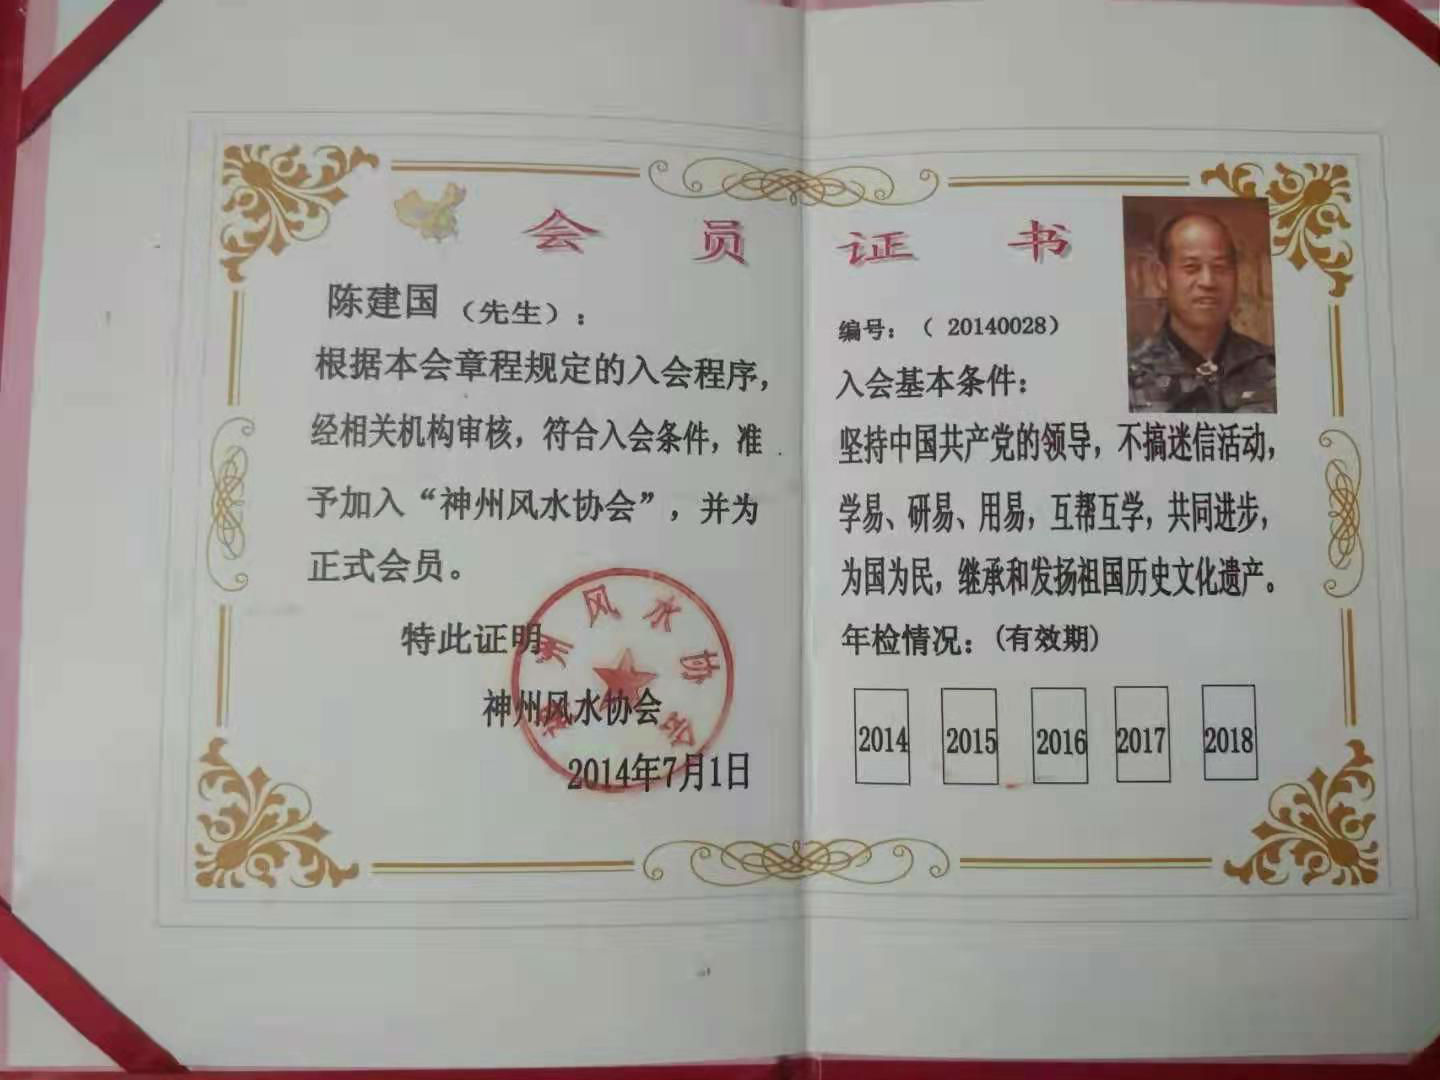 会员证书
陈建国（先生）：
根据本会章程规定的入会程序，
经相关机构审核，符合入会条件，准
予加入“神州风水协会”，并为
正式会员。
特此证明
神州风水协会
2014年7月1日
神州风水协会
编号：（20140028）
入会基本条件：
坚持中国共产党的领导，不搞迷信活动，
学易、研易、用易，互帮互学，共同进步，
为国为民，继承和发扬祖国历史文化遗产。
年检情况：(有效期)
2014 2015 2016 2017 2018